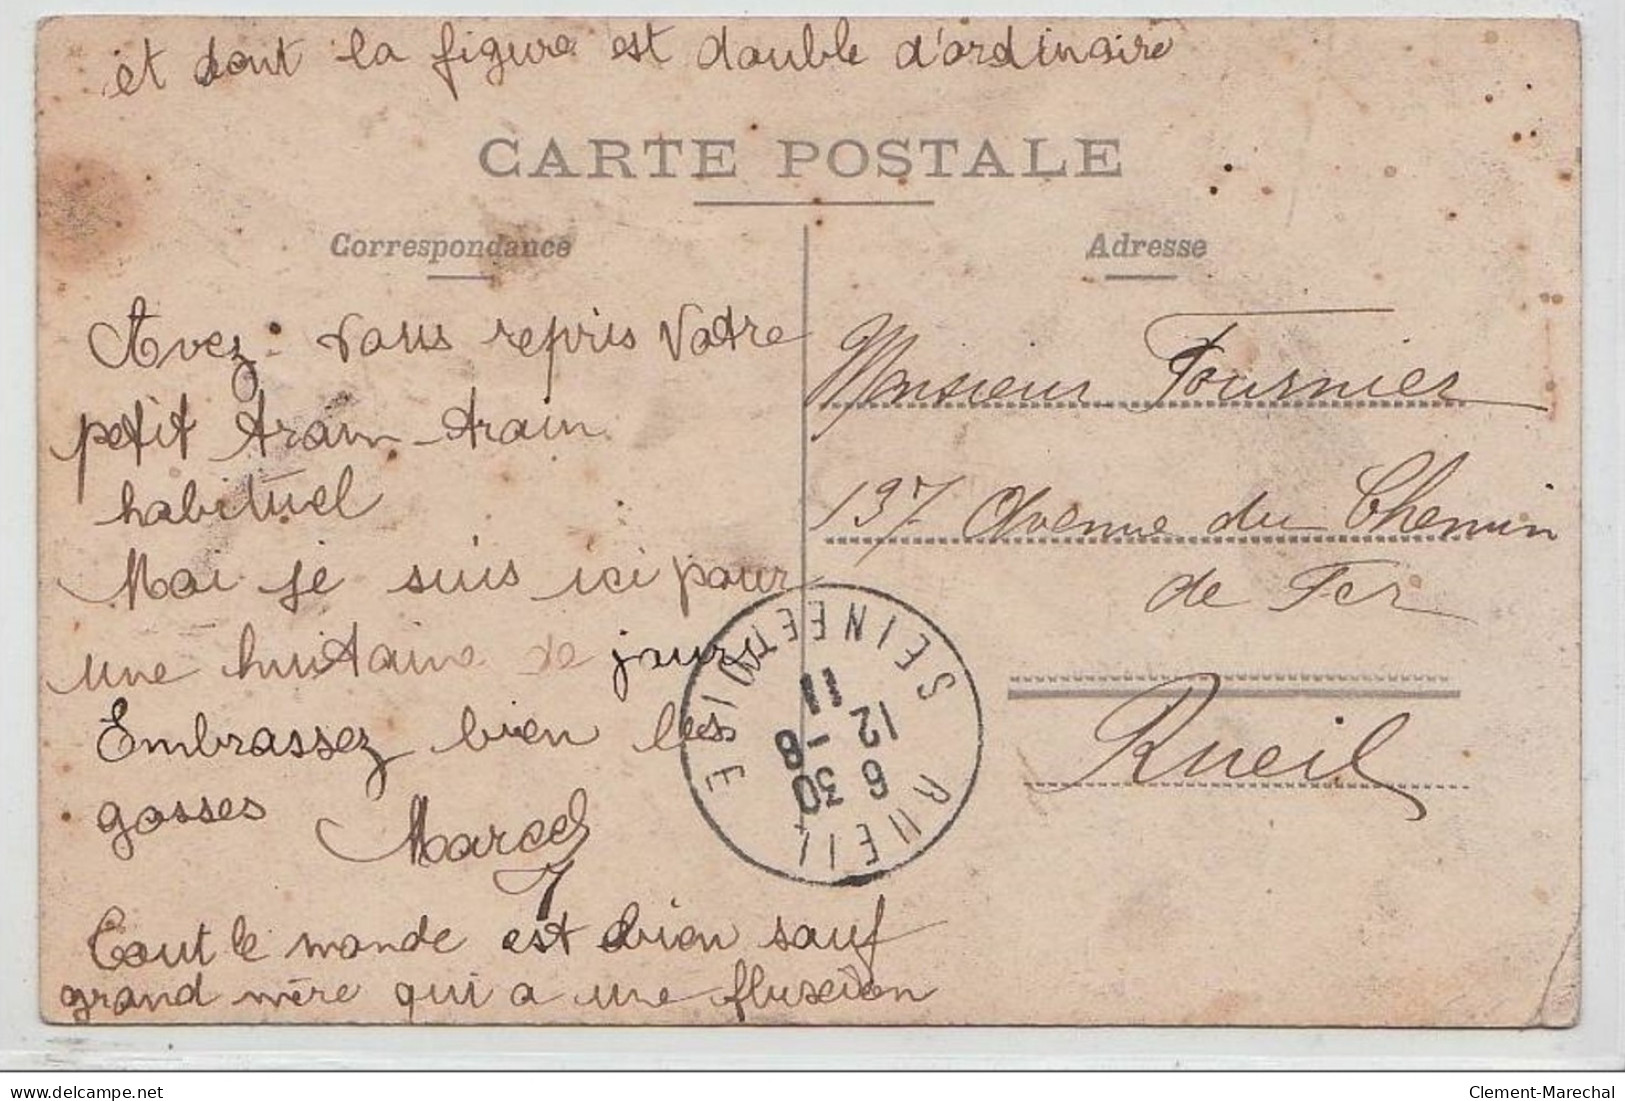 et dont la figure est double d'ordinaire
CARTE POSTALE
Correspondance
Adresse
Avez-vous repris votre
petit train-train
habituel
Moi je suis ici pour
une huitaine de jours
Embrassez bien les
gosses
Marcel
Tout le monde est bien sauf
grand mère qui a une fluxion
Monsieur Fournier
137 Avenue du Chemin
de Fer
Rueil
RUEIL
SEINE ET OISE
6 30
12 - 8
11
delcampe.net
Clement-Marechal